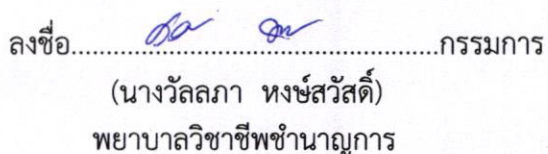 ลงชื่อ......................................................กรรมการ
(นางวัลลภา หงษ์สวัสดิ์)
พยาบาลวิชาชีพชำนาญการ